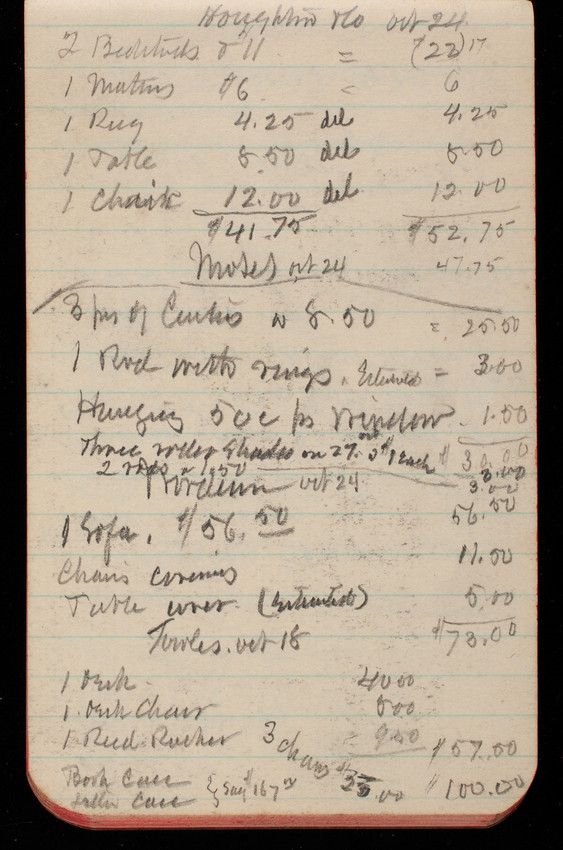 Houghton oct 24.
2 Bedsteads $11 = ($22) 17
1 Matress $6 = 6
1 Rug 4.25 del 4.25
1 Table 8.50 del 8.50
1 Chair 12.00 del 12.00
$41.75 $52.75
oct 24 47.75
3 prs of @ 8.50 = 25.50
1 Rod with rings. Estimated = 3.00
Hanging 50c pr Window. 1.50
Three roller Shades on 27. $1 each $30.00
2 rods @ 1.50 3.00
oct 24 3.00
1 Sofa. $56.50 56.50
Chairs covering 11.50
Table cover (Estimated) 5.00
Towles. oct 18 $73.00
1 Desk. 40.00
1. Desk Chair 8.00
1 Reed Rocker = 9.00 $57.00
3 chairs 25.00
Book Case
Case Say $167 $100.00